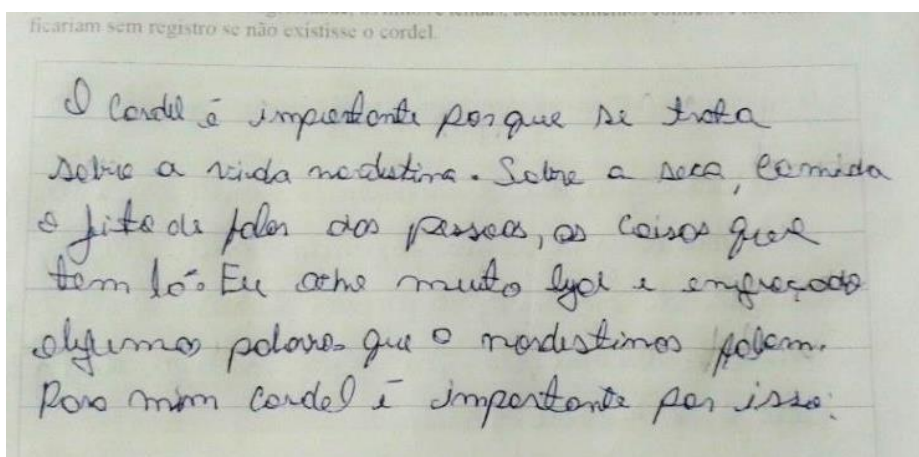 ficariam sem registro se não existisse o cordel.
O Cordel é importante porque se trata
sobre a vinda nordestina. Sobre a seca, comida
o jeito de falar das pessoas, as coisas que
tem lá. Eu acho muito legal e engraçado
algumas palavras que o nordestinos falam.
Para mim cordel é importante por isso.